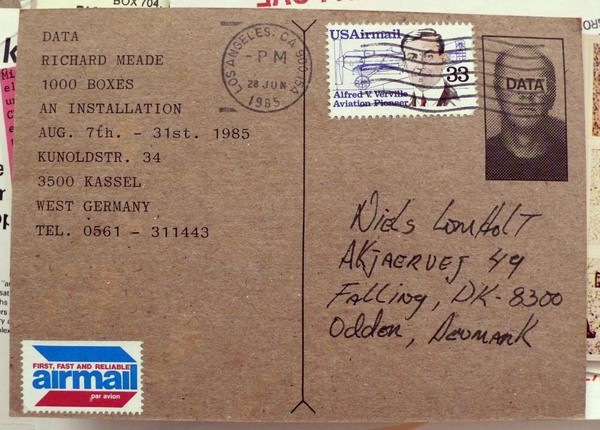 BOX 704,
DATA
RICHARD MEADE
1000 BOXES
AN INSTALLATION
AUG. 7th. - 31st. 1985
KUNOLDSTR. 34
3500 KASSEL
WEST GERMANY
TEL. 0561 - 311443
LOS ANGELES, CA
- PM
28 JUN
1985
USAirmail
33
Alfred V. Verville
Aviation Pioneer
DATA
Niels LomHolT
AKjaervej 49
Falling, DK-8300
Odder, Denmark
FIRST, FAST AND RELIABLE
airmail
par avion